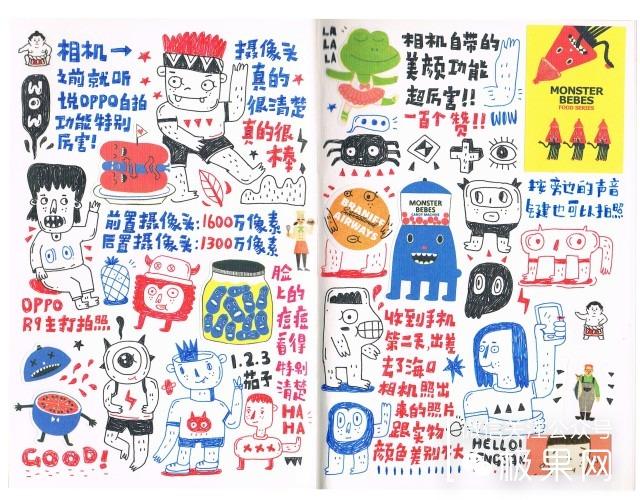 相机→
之前就听
说OPPO自拍
功能特别
厉害!
303
摄像头
真的
很清楚
真的很
棒
前置摄像头:1600万像素
后置摄像头:1300万像素
OPPO
R9主打拍照
脸
上的
痘痘
看得
特别
清楚
HA
HA
1.2.3
茄子
GOOD!
LA
LA
LA
相机自带的
美颜功能
超厉害!!
一百个赞!!
WOW
MONSTER
BEBES
FOOD SERIES
BRANIFF
AIRWAYS
MONSTER
BEBES
CANDY MACHINE
按旁边的声音
键也可以拍照
收到手机
第二天,出差
去了海口
相机照出
来的照片,
跟实物
颜色差别不大
HELLO!
公众号
极果网